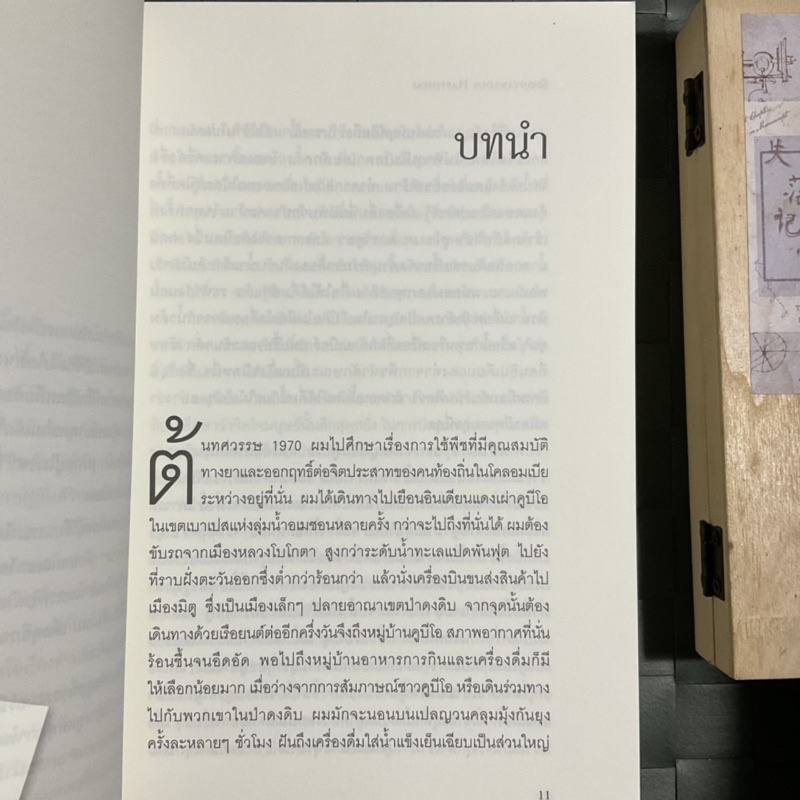 บทนำ
ต้นทศวรรษ 1970 ผมไปศึกษาเรื่องการใช้พืชที่มีคุณสมบัติ
ทางยาและออกฤทธิ์ต่อจิตประสาทของคนท้องถิ่นในโคลอมเบีย
ระหว่างอยู่ที่นั่น ผมได้เดินทางไปเยือนอินเดียนแดงเผ่าคูบีโอ
ในเขตเบาเปสแห่งลุ่มน้ำอเมซอนหลายครั้ง กว่าจะไปถึงที่นั่นได้ ผมต้อง
ขับรถจากเมืองหลวงโบโกตา สูงกว่าระดับน้ำทะเลแปดพันฟุต ไปยัง
ที่ราบฝั่งตะวันออกซึ่งต่ำกว่าร้อนกว่า แล้วนั่งเครื่องบินขนส่งสินค้าไป
เมืองมิตู ซึ่งเป็นเมืองเล็กๆ ปลายอาณาเขตป่าดงดิบ จากจุดนั้นต้อง
เดินทางด้วยเรือยนต์ต่ออีกครึ่งวันจึงถึงหมู่บ้านคูบีโอ สภาพอากาศที่นั่น
ร้อนชื้นจนอึดอัด พอไปถึงหมู่บ้านอาหารการกินและเครื่องดื่มก็มี
ให้เลือกน้อยมาก เมื่อว่างจากการสัมภาษณ์ชาวคูบีโอ หรือเดินร่วมทาง
ไปกับพวกเขาในป่าดงดิบ ผมมักจะนอนบนเปลญวนคลุมมุ้งกันยุง
ครั้งละหลายๆ ชั่วโมง ฝันถึงเครื่องดื่มใส่น้ำแข็งเย็นเฉียบเป็นส่วนใหญ่
11